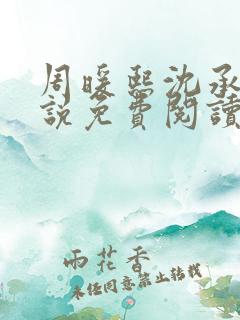 周暖熙沈承
說免費閱讀
雨花香
未经同意禁止转载